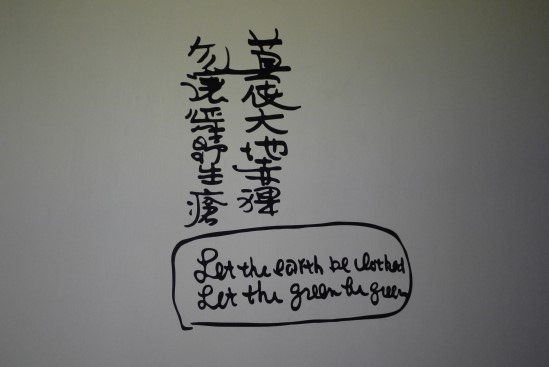 莫使大地赤裸
勿讓綠野生瘡
Let the earth be clothed
Let the green be green